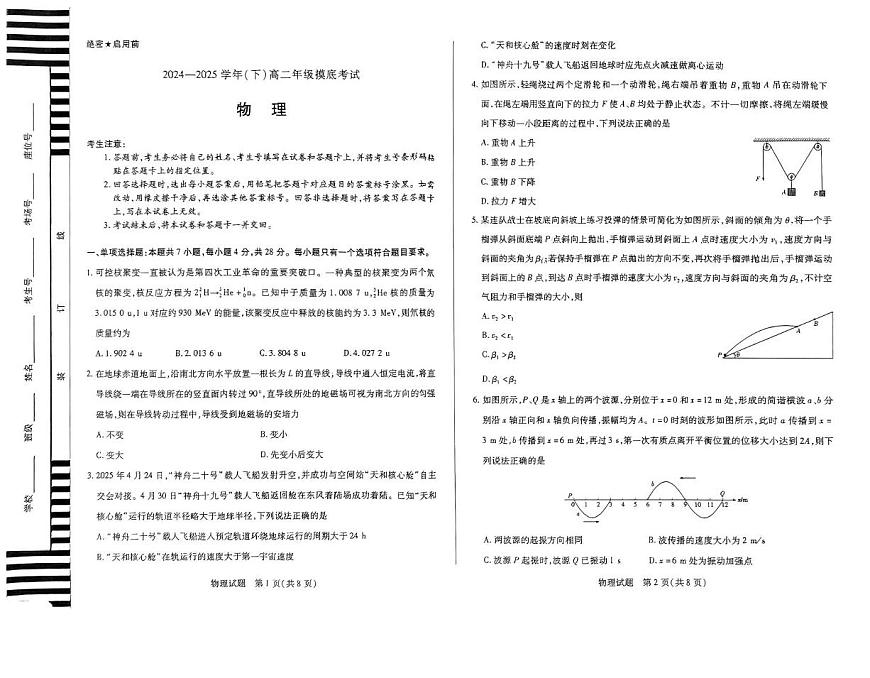 绝密★启用前
2024—2025 学年(下)高二年级摸底考试
物 理
考生注意:
1. 答题前,考生务必将自己的姓名、考生号填写在试卷和答题卡上,并将考生号条形码粘
贴在答题卡上的指定位置。
2. 回答选择题时,选出每小题答案后,用铅笔把答题卡对应题目的答案标号涂黑。如需
改动,用橡皮擦干净后,再选涂其他答案标号。回答非选择题时,将答案写在答题卡
上,写在本试卷上无效。
3. 考试结束后,将本试卷和答题卡一并交回。
一、单项选择题:本题共 7 小题,每小题 4 分,共 28 分。每小题只有一个选项符合题目要求。
1. 可控核聚变一直被认为是第四次工业革命的重要突破口。一种典型的核聚变为两个氘
核的聚变,核反应方程为 2²₁H→³₂He+¹₀n。已知中子质量为 1.008 7 u,³₂He 核的质量为
3.015 0 u,1 u 对应约 930 MeV 的能量,该聚变反应中释放的核能约为 3.3 MeV,则氘核的
质量约为
A. 1.902 4 u B. 2.013 6 u C. 3.804 8 u D. 4.027 2 u
2. 在地球赤道地面上,沿南北方向水平放置一根长为 L 的直导线,导线中通入恒定电流,将直
导线绕一端在导线所在的竖直面内转过 90°,直导线所处的地磁场可视为南北方向的匀强
磁场,则在导线转动过程中,导线受到地磁场的安培力
A. 不变 B. 变小
C. 变大 D. 先变小后变大
3. 2025 年 4 月 24 日,“神舟二十号”载人飞船发射升空,并成功与空间站“天和核心舱”自主
交会对接。4 月 30 日“神舟十九号”载人飞船返回舱在东风着陆场成功着陆。已知“天和
核心舱”运行的轨道半径略大于地球半径,下列说法正确的是
A. “神舟二十号”载人飞船进入预定轨道环绕地球运行的周期大于 24 h
B. “天和核心舱”在轨运行的速度大于第一宇宙速度
物理试题 第 1 页(共 8 页)
C. “天和核心舱”的速度时刻在变化
D. “神舟十九号”载人飞船返回地球时应先点火减速做离心运动
4. 如图所示,轻绳绕过两个定滑轮和一个动滑轮,绳右端吊着重物 B,重物 A 吊在动滑轮下
面,在绳左端用竖直向下的拉力 F 使 A、B 均处于静止状态。不计一切摩擦,将绳左端缓慢
向下移动一小段距离的过程中,下列说法正确的是
A. 重物 A 上升
B. 重物 B 上升
C. 重物 B 下降
D. 拉力 F 增大
F
A
B
5. 某连队战士在坡底向斜坡上练习投弹的情景可简化为如图所示,斜面的倾角为 θ,将一个手
榴弹从斜面底端 P 点斜向上抛出,手榴弹运动到斜面上 A 点时速度大小为 v₁,速度方向与
斜面的夹角为 β₁;若保持手榴弹在 P 点抛出的方向不变,再次将手榴弹抛出后,手榴弹运动
到斜面上的 B 点,到达 B 点时手榴弹的速度大小为 v₂,速度方向与斜面的夹角为 β₂,不计空
气阻力和手榴弹的大小,则
A. v₂ > v₁
B. v₂ < v₁
C. β₁ > β₂
D. β₁ < β₂
P
θ
A
B
6. 如图所示,P、Q 是 x 轴上的两个波源,分别位于 x=0 和 x=12 m 处,形成的简谐横波 a、b 分
别沿 x 轴正向和 x 轴负向传播,振幅均为 A。t=0 时刻的波形如图所示,此时 a 传播到 x=
3 m 处,b 传播到 x=6 m 处,再过 3 s,第一次有质点离开平衡位置的位移大小达到 2A,则下
列说法正确的是
P
a
b
Q
0 1 2 3 4 5 6 7 8 9 10 11 12 x/m
A. 两波源的起振方向相同 B. 波传播的速度大小为 2 m/s
C. 波源 P 起振时,波源 Q 已振动 1 s D. x=6 m 处为振动加强点
物理试题 第 2 页(共 8 页)
座位号
考场号
考生号
姓名
班级
学校
线
订
装